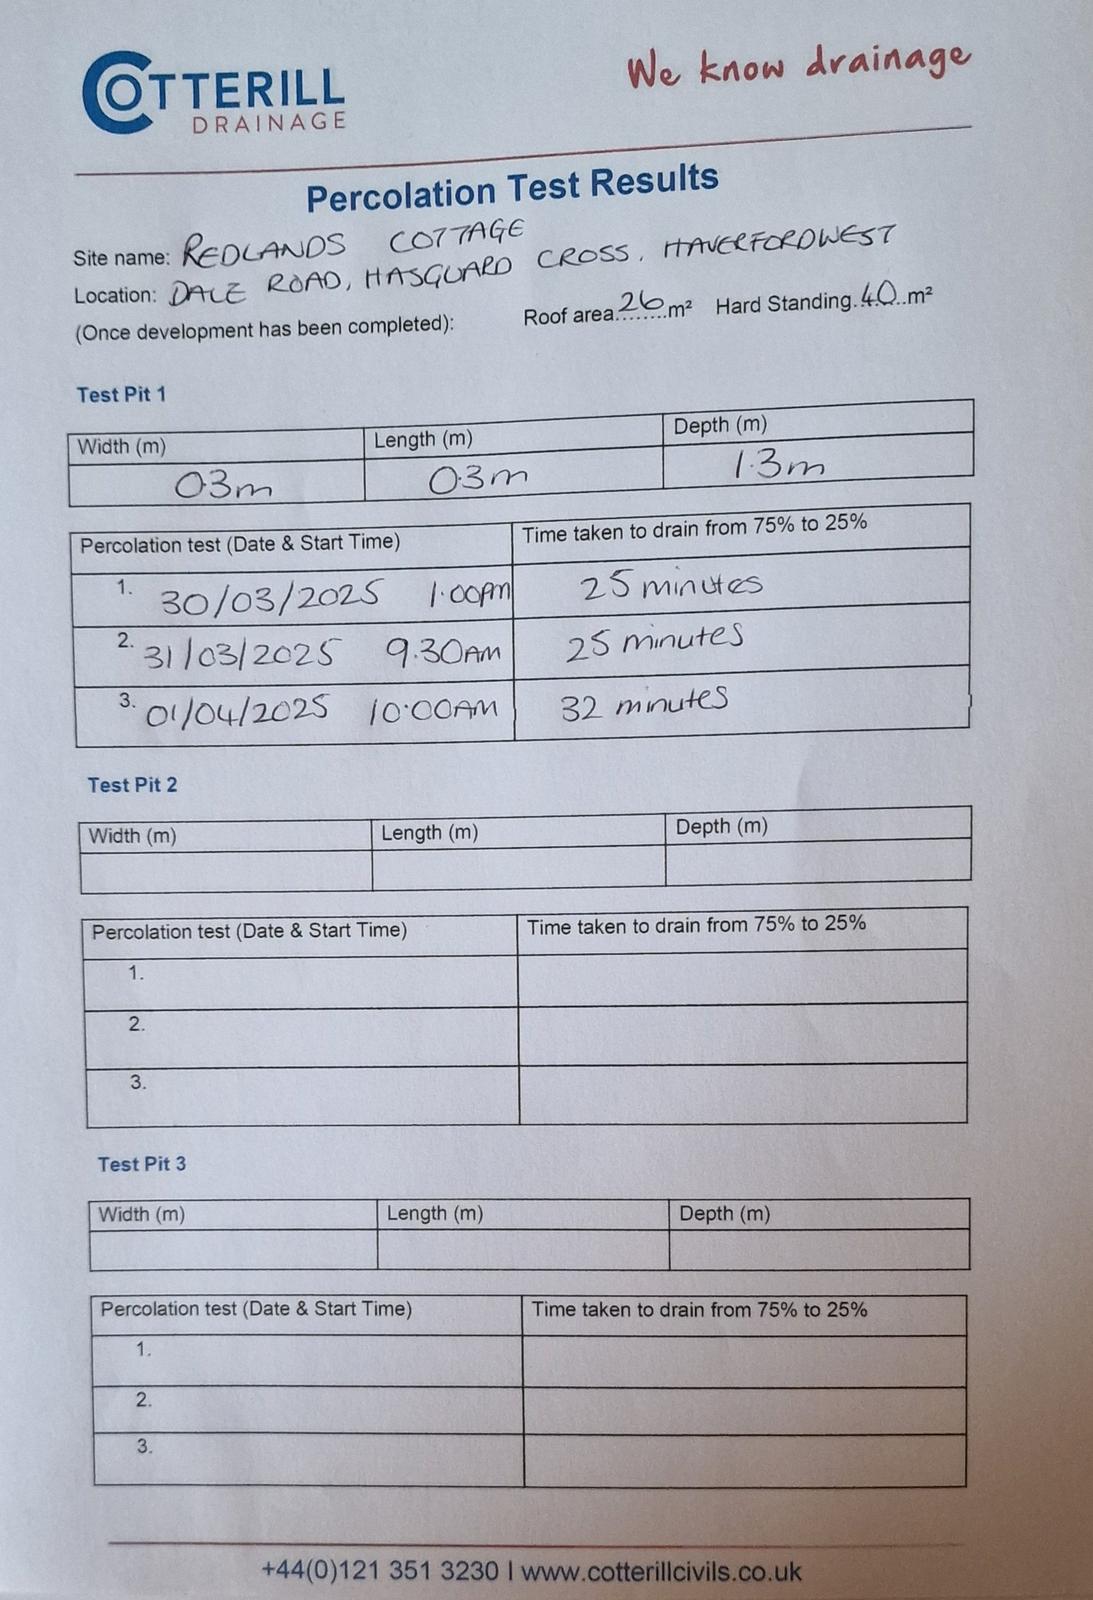 COTTERILL
DRAINAGE
We know drainage
Percolation Test Results
Site name: REDLANDS COTTAGE
Location: DALE ROAD, HASGUARD CROSS, HAVERFORDWEST
(Once development has been completed): Roof area 26 m² Hard Standing 40 m²
Test Pit 1
Width (m) Length (m) Depth (m)
0.3m 0.3m 1.3m
Percolation test (Date & Start Time) Time taken to drain from 75% to 25%
1. 30/03/2025 1.00PM 25 minutes
2. 31/03/2025 9.30AM 25 minutes
3. 01/04/2025 10:00AM 32 minutes
Test Pit 2
Width (m) Length (m) Depth (m)
Percolation test (Date & Start Time) Time taken to drain from 75% to 25%
1.
2.
3.
Test Pit 3
Width (m) Length (m) Depth (m)
Percolation test (Date & Start Time) Time taken to drain from 75% to 25%
1.
2.
3.
+44(0)121 351 3230 | www.cotterillcivils.co.uk